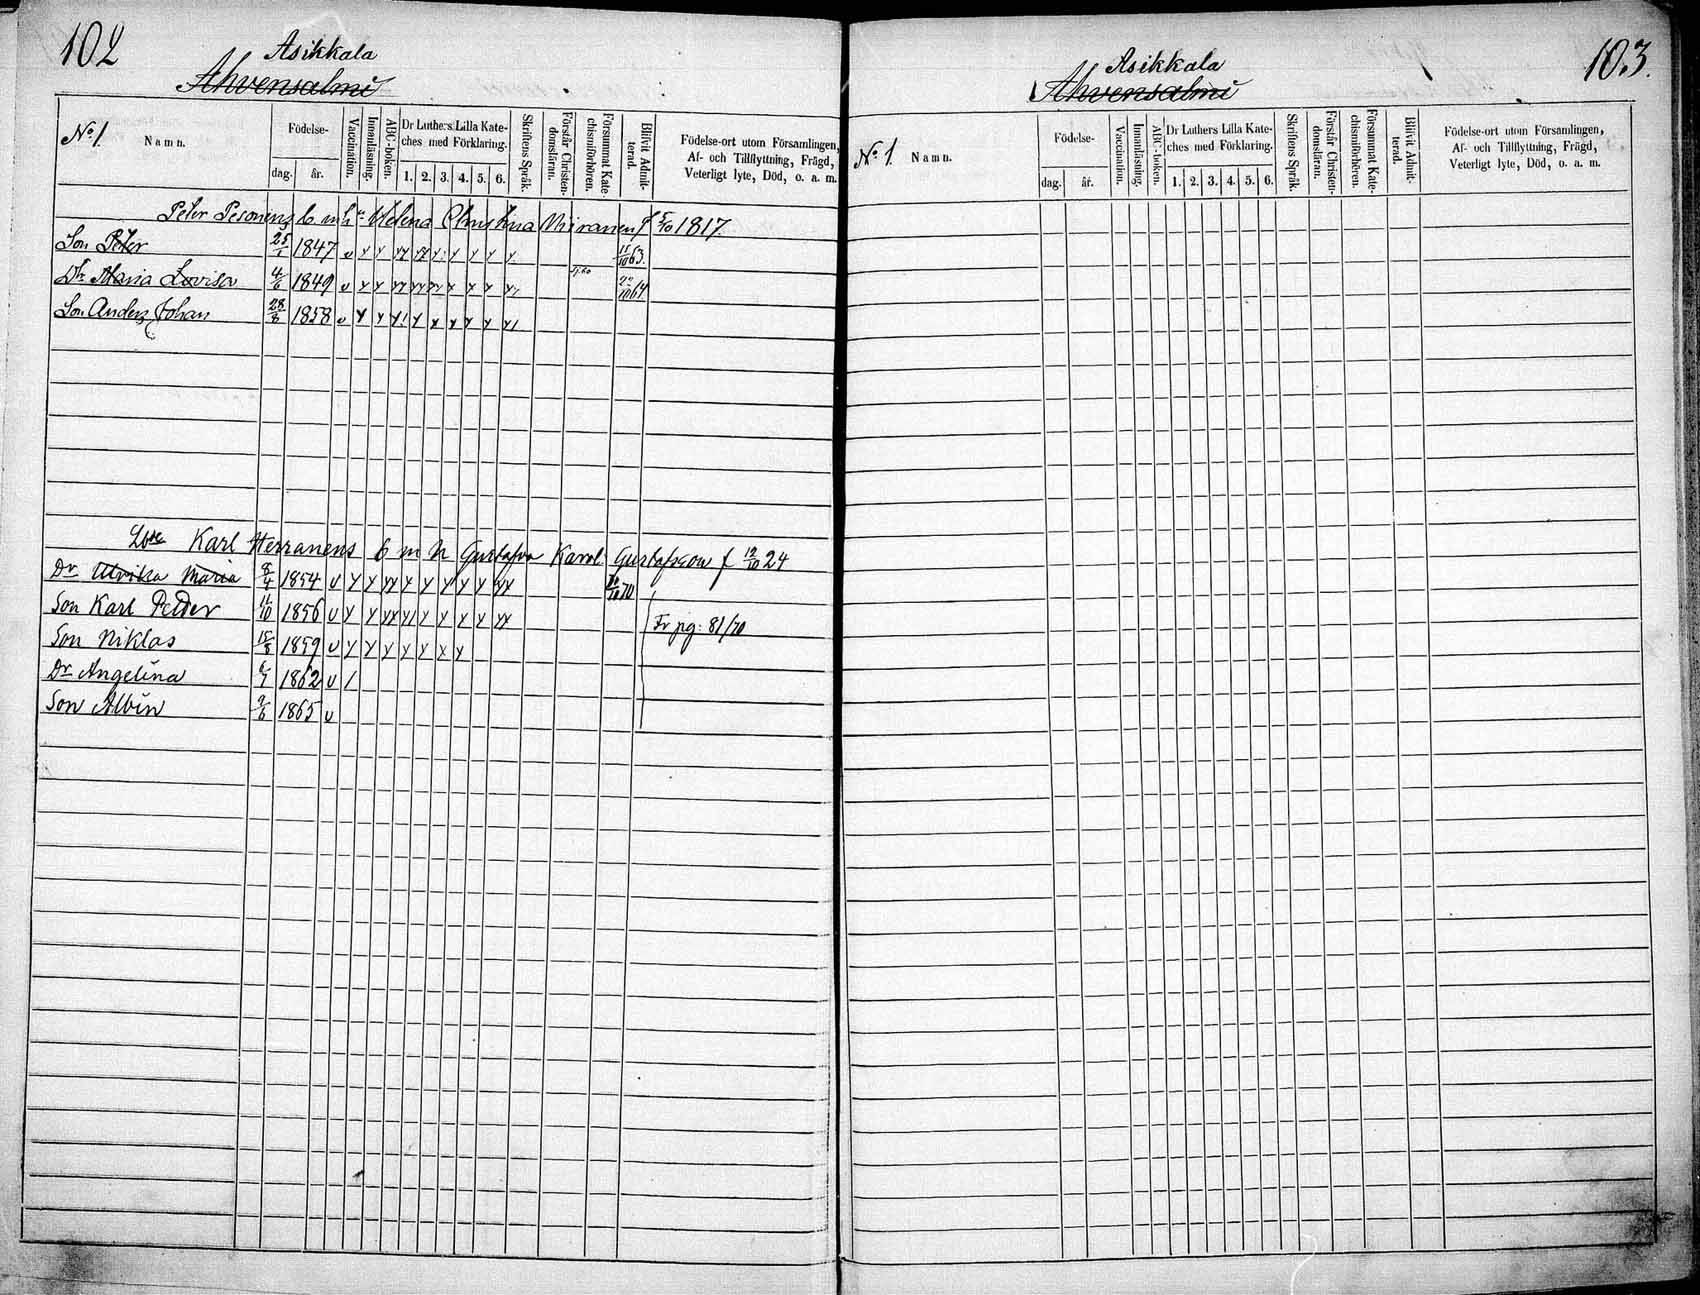 102
Asikkala
Ahvensalmi
No 1. Namn.
Födelse-
dag. år.
Vaccination.
Innanläsning.
ABC-boken.
Dr Luthers Lilla Kate-
ches med Förklaring.
1. 2. 3. 4. 5. 6.
Skriftens Språk.
Förstår Christen-
domsläran.
Försummat Kate-
chismiförhören.
Blifvit Admit-
terad.
Födelse-ort utom Församlingen,
Af- och Tillflyttning, Frägd,
Veterligt lyte, Död, o. a. m.
Peter Pesonens b m h Helena Christina Miiranen f 5/10 1817.
Son Peter 25/1 1847 v 11/10 63.
Dr Maria Lovisa 4/6 1849 v 22/10 64
Son Anders Johan 28/8 1858 v
Karl Herranens b m h Gustafva Karol. Gustafsson f 12/10 24
Dr Ulrika Maria 8/4 1854 v 70
Son Karl Petter 11/10 1856 v
Fr pg: 81/70
Son Niklas 15/8 1859 v
Dr Angelina 6/7 1862 v
Son Albin 9/6 1865 v
103.
Asikkala
Ahvensalmi
No. 1. Namn.
Födelse-
dag. år.
Vaccination.
Innanläsning.
ABC-boken.
Dr Luthers Lilla Kate-
ches med Förklaring.
1. 2. 3. 4. 5. 6.
Skriftens Språk.
Förstår Christen-
domsläran.
Försummat Kate-
chismiförhören.
Blifvit Admit-
terad.
Födelse-ort utom Församlingen,
Af- och Tillflyttning, Frägd,
Veterligt lyte, Död, o. a. m.